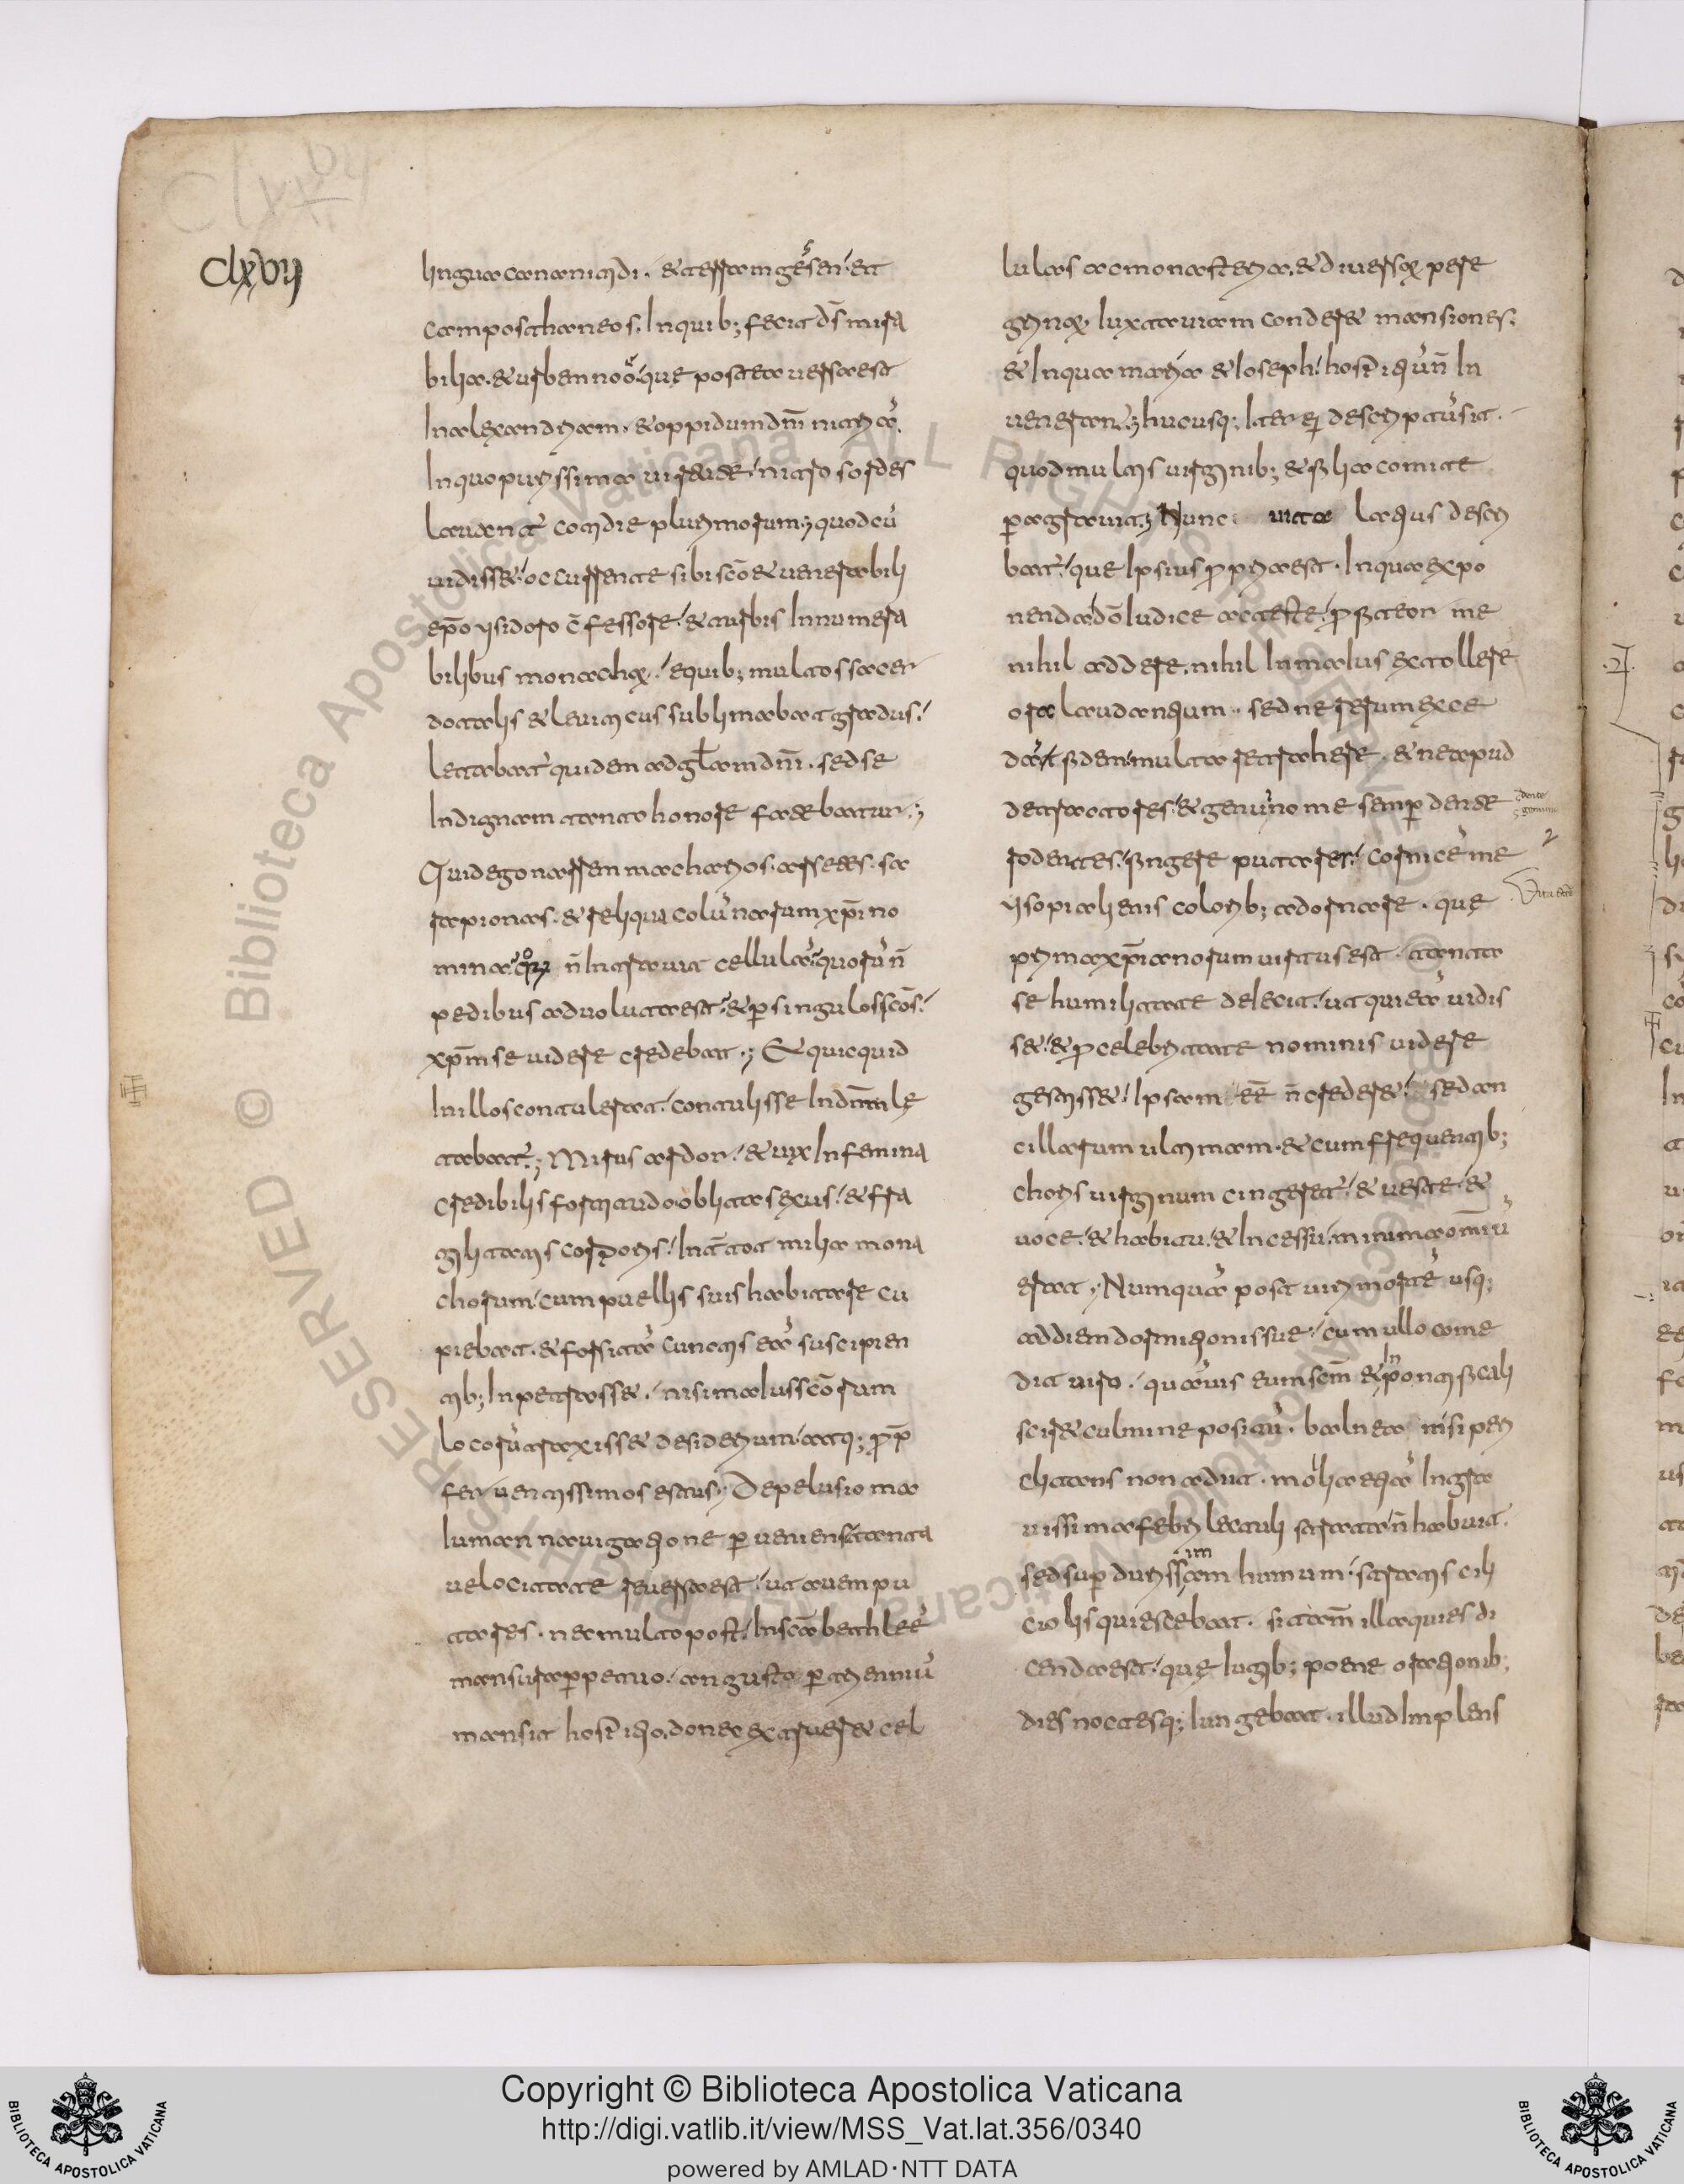 Clxvii
lingua cananitidi. & terram gesen. et
campos thaneos. In quib; fecit ds mira
bilia. & urbem noo. que postea uersa est
In alexandriam. & oppidum dni nitria.
In quo purissima uirtutu nitro sordes
lauant cotidie plurimorum; quod cu
uidisset. occurrente sibi sco & uenerabili
epo ysidoro cfessore. & turbis Innumera
bilibus monachoru. e quib; multos sacer
dotalis & leuiticus sublimabat gradus.
letabat quidem ad glam dni. sed se
Indignam tanto honore fatebatur;
Quid ego narrem macharios. arseetes. sa
rapionas. & reliqua colunarum xpi no
mina. cellula. quoru n
pedibus aduoluta est. & p singulos scos.
xpm se uidere credebat; Et quicquid
In illos contulerat. contulisse In dnm le
tabat; Mirus ardor. & uix In femina
credibilis fortitudo. oblita sexus. & fra
gilitatis corporis. Int tot milia mona
chorum. cum puellis suis habitare cu
piebat. & forsita cunctis ea suscipien
tib; Inpetrasset. nisi malus scorum
locoru traxisset desiderium. atq; pp
feruentissimos estus. De pelusio ma
iuman nauigatione puenienstanta
uelocitate reuersa est. ut auem pu
tares. nec multo post. In sca bethlee
mansura ppetuo. angusto p trienniu
mansit hospitio. donec extrueret cel
lulas ac monasteria. & diuersoru pere
grinoru. Iuxta uiam conderet mansiones.
& In qua maria & Ioseph. hospitiu n In
uenerant; hucusq; Iter ei descriptu sit.
quod multis uirginib; & filia comite
pagrauit; Nunc uita latius descri
bat. que Ipsius ppria est. In qua expo
nenda do Iudice ac teste. pfiteor me
nihil addere. nihil In maius extollere
ora laudantium. sed ne rerum exce
da fidem. multa retrahere. & ne apud
detractores. & genuino me semp dente
rodentes. fingere putarer. & cornice me
ysopi alienis colorib; adornare. que
prima xpianorum uirtus est. tanta
se humilitate deiecit. ut qui ea uidis
set. & p celebritate nominis uidere
gestisset. Ipsam ee n crederet. sed an
cillarum ultimam. & cum frequentib;
choris uirginum cingeret. & ueste. &
uoce. & habitu. & Incessu. minima omiu
erat; Numqua post uiri morte usq;
ad diem dormitionis sue. cum ullo come
dit uiro. quauis eum scm & In pontificali
sciret culmine positu. balnea nisi peri
clitans non adiit. mollia etia In gra
uissima febri lectuli strata n habuit.
sed sup durissimam humum. stratis cili
ciolis quiescebat. si tam illa quies di
cenda est. que Iugib; pene orationib;
dies noctesq; Iungebat. illud Implens
Copyright © Biblioteca Apostolica Vaticana
http://digi.vatlib.it/view/MSS_Vat.lat.356/0340
powered by AMLAD·NTT DATA